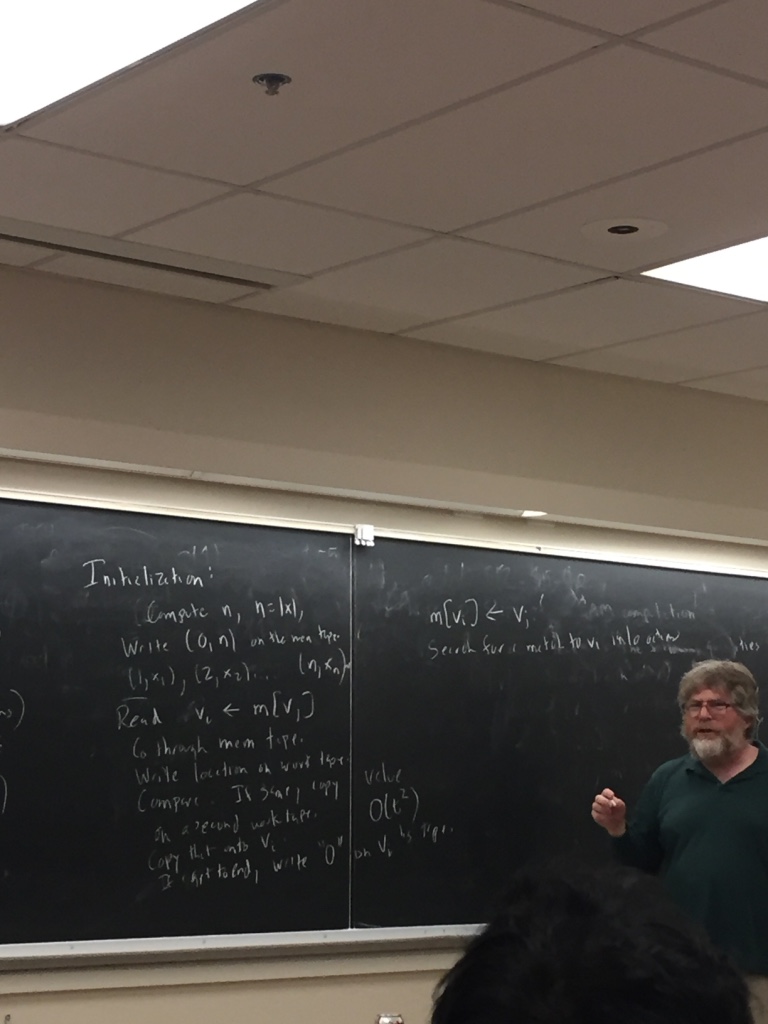 Initialization:
Compute n, n=|x|,
Write (0,n) on the mem tape.
(1,x₁), (2,x₂)... (n,xₙ)
Read vᵢ ← m[vⱼ]
Go through mem tape.
Write location on work tape.
Compare. If same, copy value
on a second work tape.
Copy that onto Vᵢ.
If get to end, write "0" on Vᵢ
O(t²)
m[vᵢ] ← vⱼ
Search for a match to vᵢ
computation